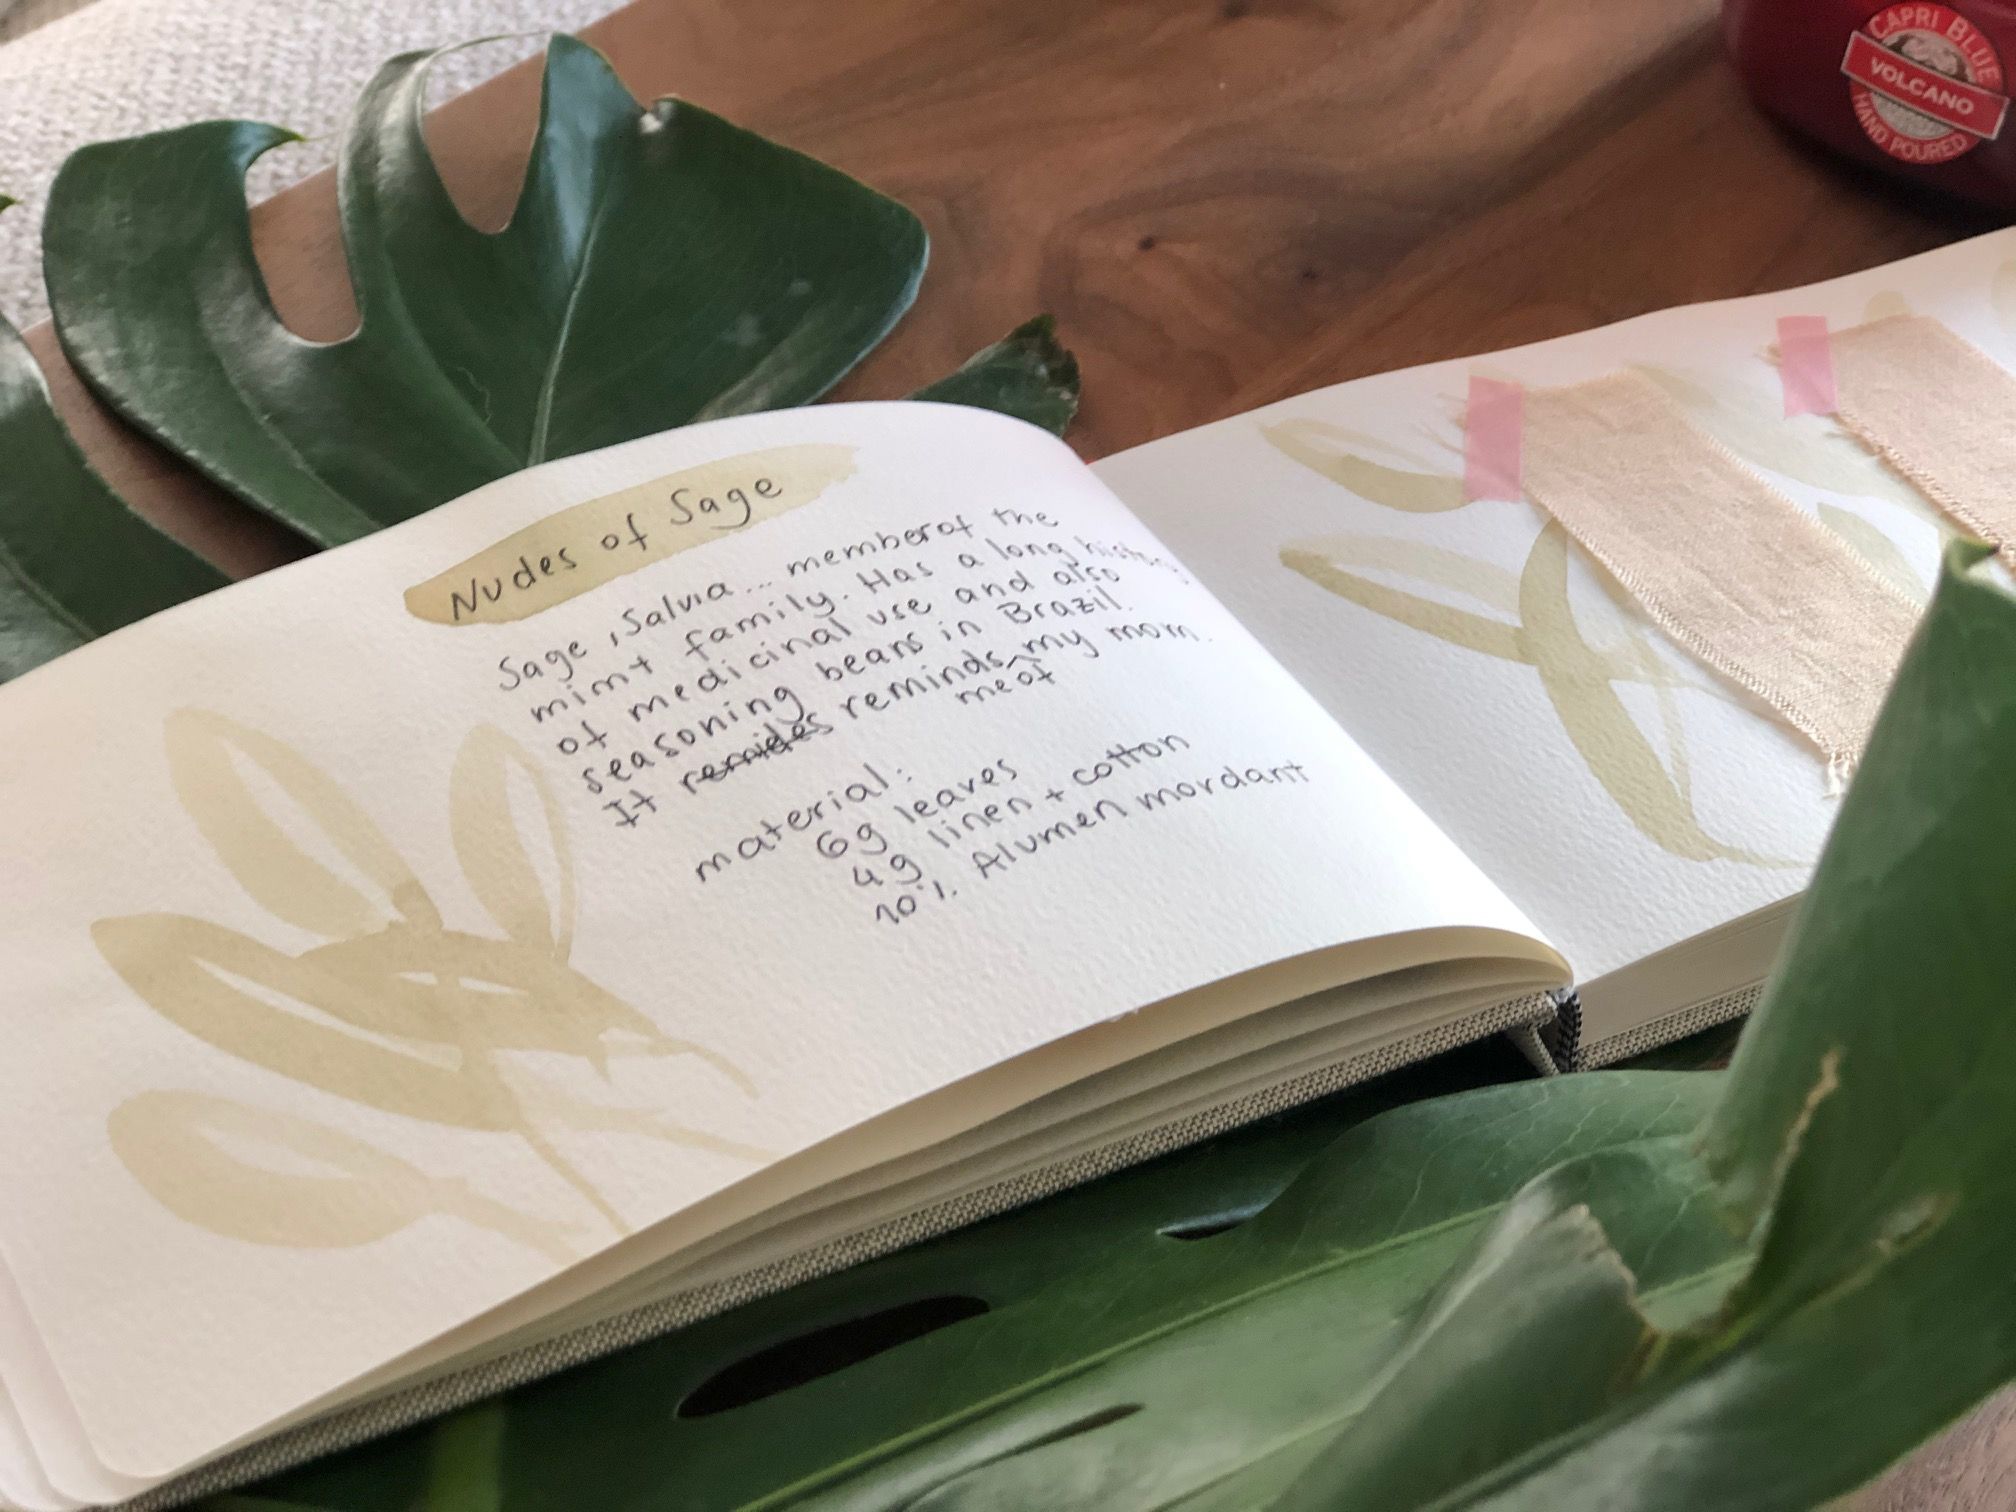 Nudes of Sage
Sage, Salvia... member of the
mint family. Has a long history
of medicinal use and also
seasoning beans in Brazil.
It remides reminds me of my mom.
material:
6g leaves
4g linen + cotton
10%. Alumen mordant
CAPRI BLUE
VOLCANO
HAND POURED